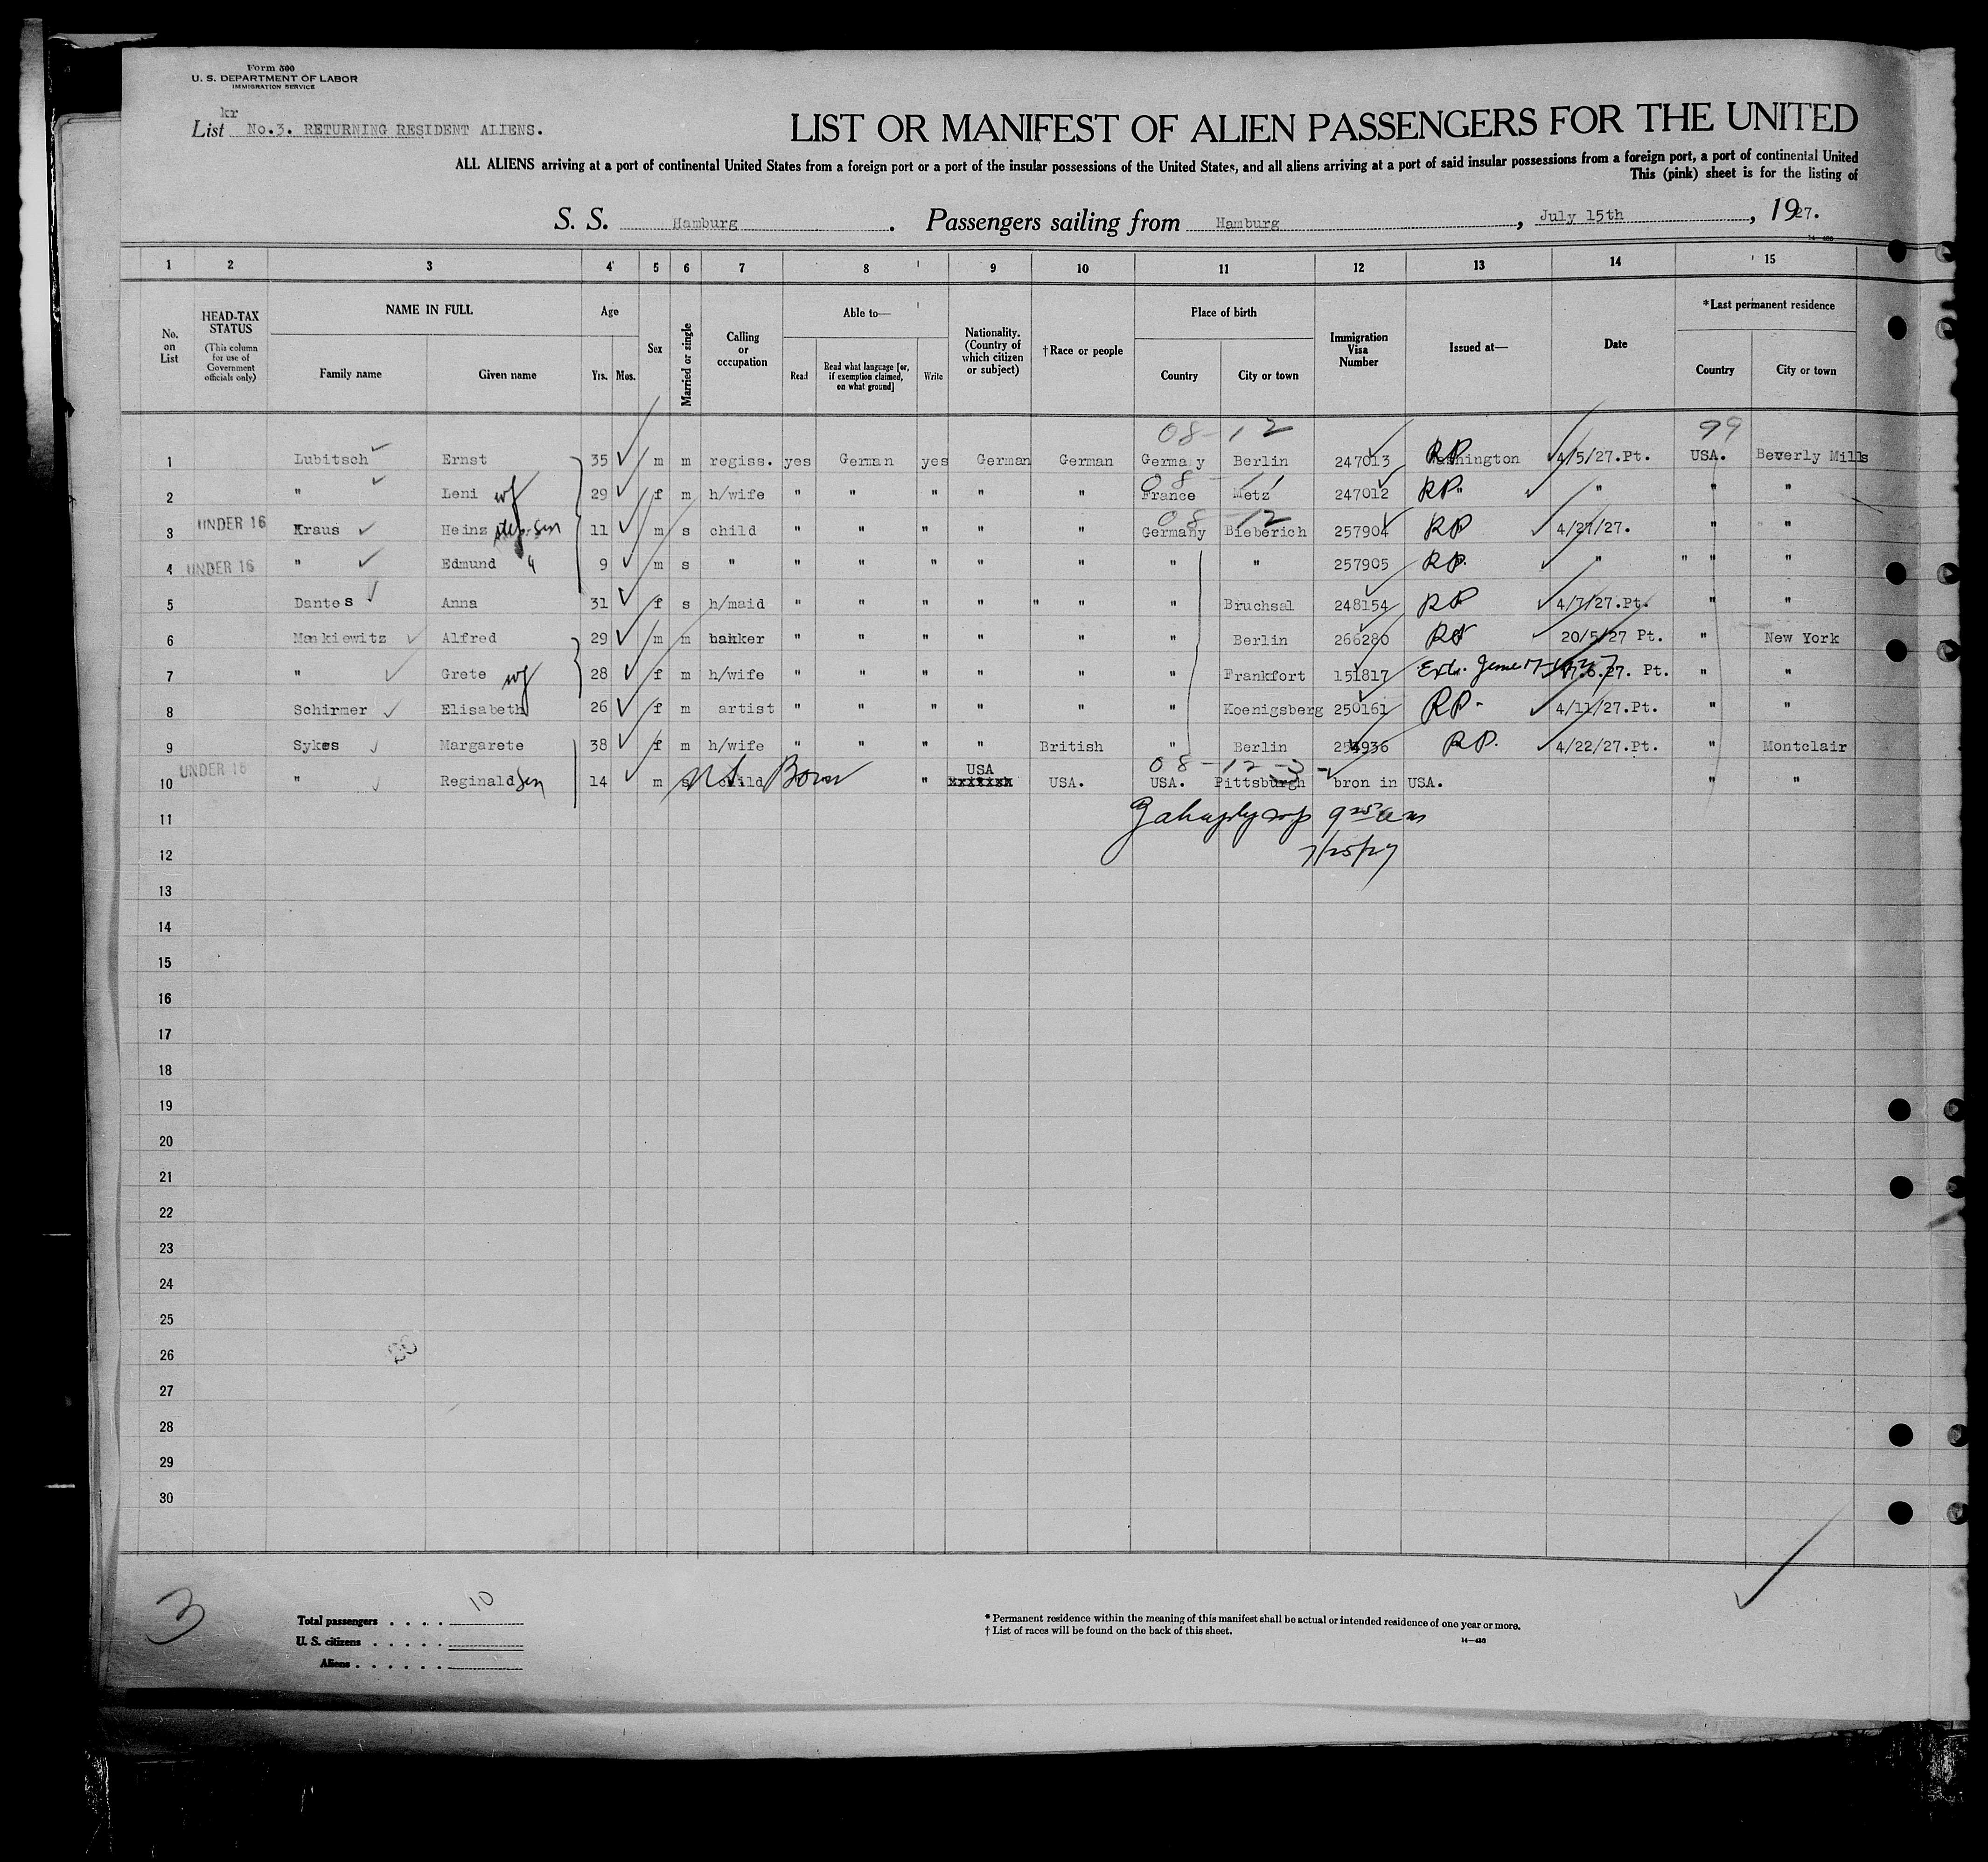 Form 500
U. S. DEPARTMENT OF LABOR
IMMIGRATION SERVICE
kr
List No.3. RETURNING RESIDENT ALIENS.
LIST OR MANIFEST OF ALIEN PASSENGERS FOR THE UNITED
ALL ALIENS arriving at a port of continental United States from a foreign port or a port of the insular possessions of the United States, and all aliens arriving at a port of said insular possessions from a foreign port, a port of continental United
This (pink) sheet is for the listing of
S. S. Hamburg . Passengers sailing from Hamburg , July 15th , 1927.
1 2 3 4 5 6 7 8 9 10 11 12 13 14 15
No. on List
HEAD-TAX STATUS (This column for use of Government officials only)
NAME IN FULL
Family name Given name
Age
Yrs. Mos.
Sex
Married or single
Calling or occupation
Able to—
Read Read what language [or, if exemption claimed, on what ground] Write
Nationality. (Country of which citizen or subject)
†Race or people
Place of birth
Country City or town
Immigration Visa Number
Issued at—
Date
*Last permanent residence
Country City or town
08-12 99
1 Lubitsch Ernst 35 m m regiss. yes German yes German German Germany Berlin 247013 RP Washington 4/5/27.Pt. USA. Beverly Mills
08-11
2 " Leni wf 29 f m h/wife " " " " " France Metz 247012 RP " " " "
08-12
3 UNDER 16 Kraus Heinz step-son 11 m s child " " " " " Germany Bieberich 257904 RP 4/27/27. " "
4 UNDER 16 " Edmund " 9 m s " " " " " " " " 257905 RP " " " "
5 Dantes Anna 31 f s h/maid " " " " " " " Bruchsal 248154 RP 4/7/27.Pt. " "
6 Mankiewitz Alfred 29 m m banker " " " " " " Berlin 266280 RP 20/5/27 Pt. " New York
7 " Grete wf 28 f m h/wife " " " " " " Frankfort 151817 Ext. June 17-1927 17.6.27. Pt. " "
8 Schirmer Elisabeth 26 f m artist " " " " " " Koenigsberg 250161 RP- 4/11/27.Pt. " "
9 Sykes Margarete 38 f m h/wife " " " " British " Berlin 254936 RP. 4/22/27.Pt. " Montclair
08-12-3- USA
10 UNDER 16 " Reginald son 14 m s child US Born " xxxxxxx USA. USA. Pittsburgh bron in USA. " "
11 9 25 am
12 7/25/27
13
14
15
16
17
18
19
20
21
22
23
24
25
26
27
28
29
30
3
Total passengers . . . . 10
U. S. citizens . . . . .
Aliens . . . . . .
* Permanent residence within the meaning of this manifest shall be actual or intended residence of one year or more.
† List of races will be found on the back of this sheet.
14—436